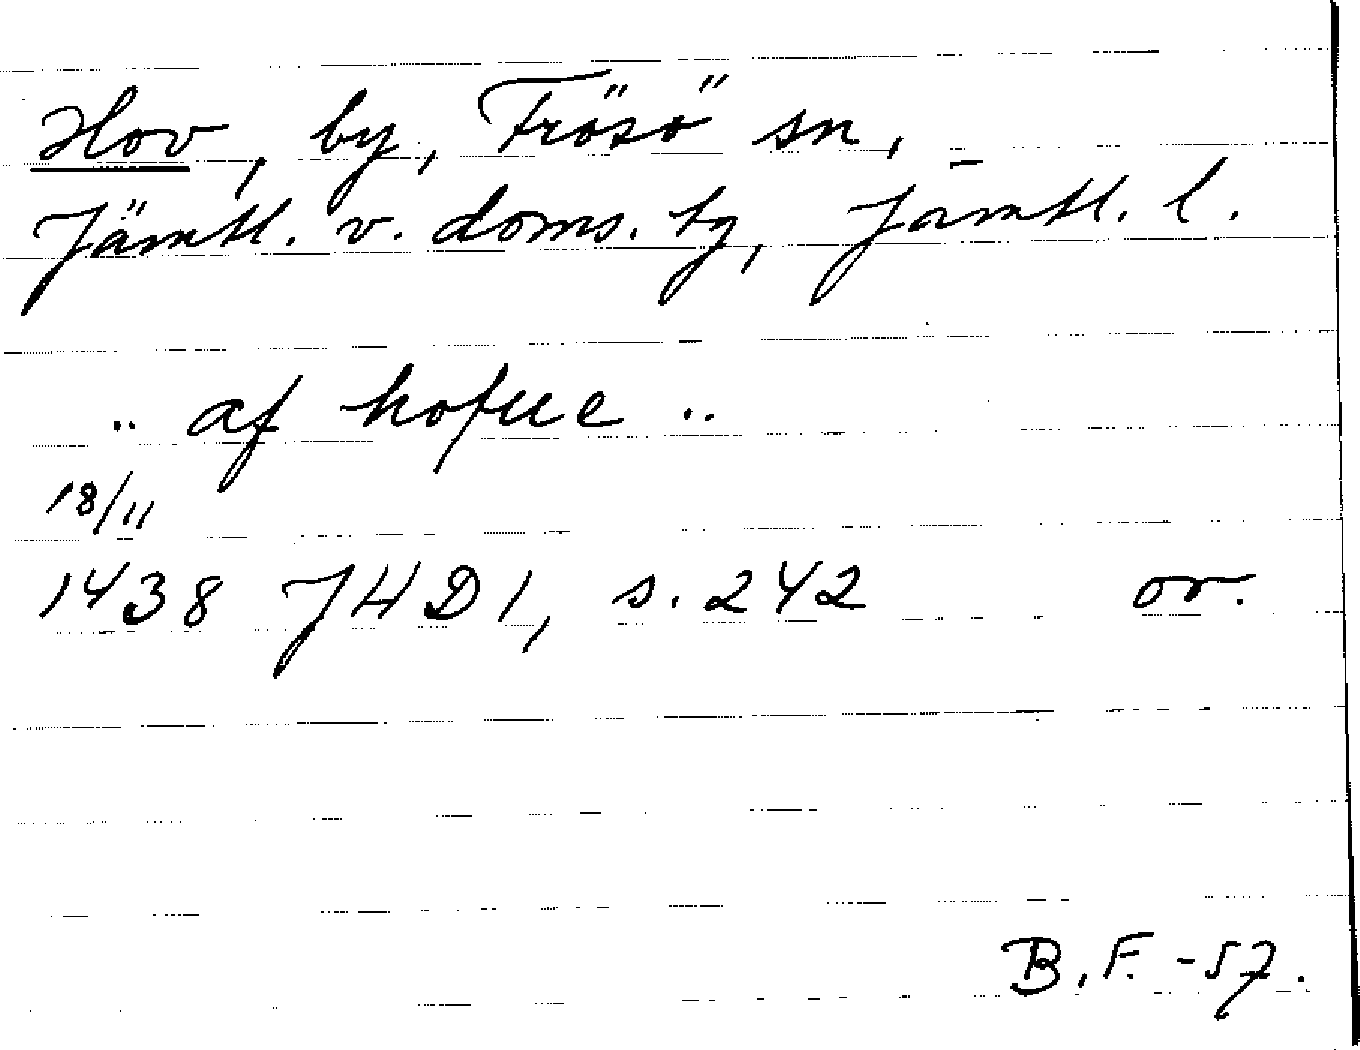 Hov, by, Frösö sn,
Jämtl. v. doms. tg, Jämtl. l.
.. af hofue ..
18/11
1438 JHD 1, s. 242 or.
B. F. -57.